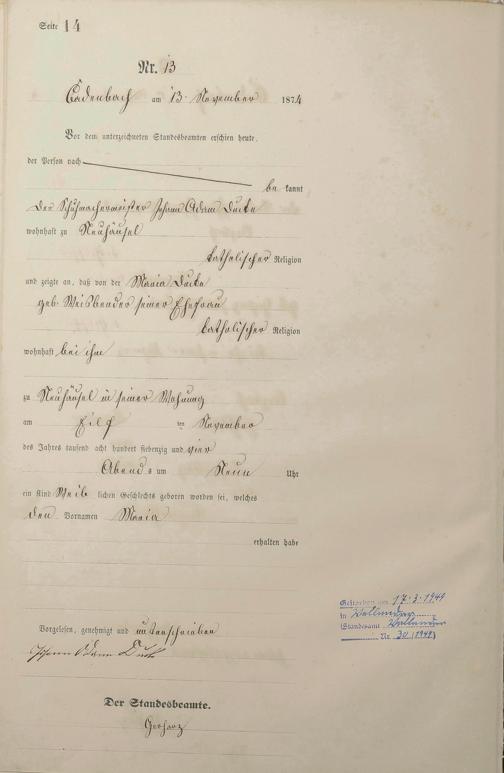 Seite 14
Nr. 13
Cadenbach am 13. November 1874
Vor dem unterzeichneten Standesbeamten erschien heute,
der Person nach
be kannt
der Schuhmachermeister Johann Adam
wohnhaft zu Neuhäusel
katholischer Religion
und zeigte an, daß von der Maria
geb. seiner Ehefrau
katholischer Religion
wohnhaft bei ihm
zu Neuhäusel in seiner Wohnung
am Eilf ten November
des Jahres tausend acht hundert siebenzig und vier
Abends um Neun Uhr
ein Kind Weib lichen Geschlechts geboren worden sei, welches
den Vornamen Maria
erhalten habe
Vorgelesen, genehmigt und unterschrieben
Johann Adam
Der Standesbeamte.
Gestorben am 17.3.1949
in
Standesamt
Nr. 30 (1949)